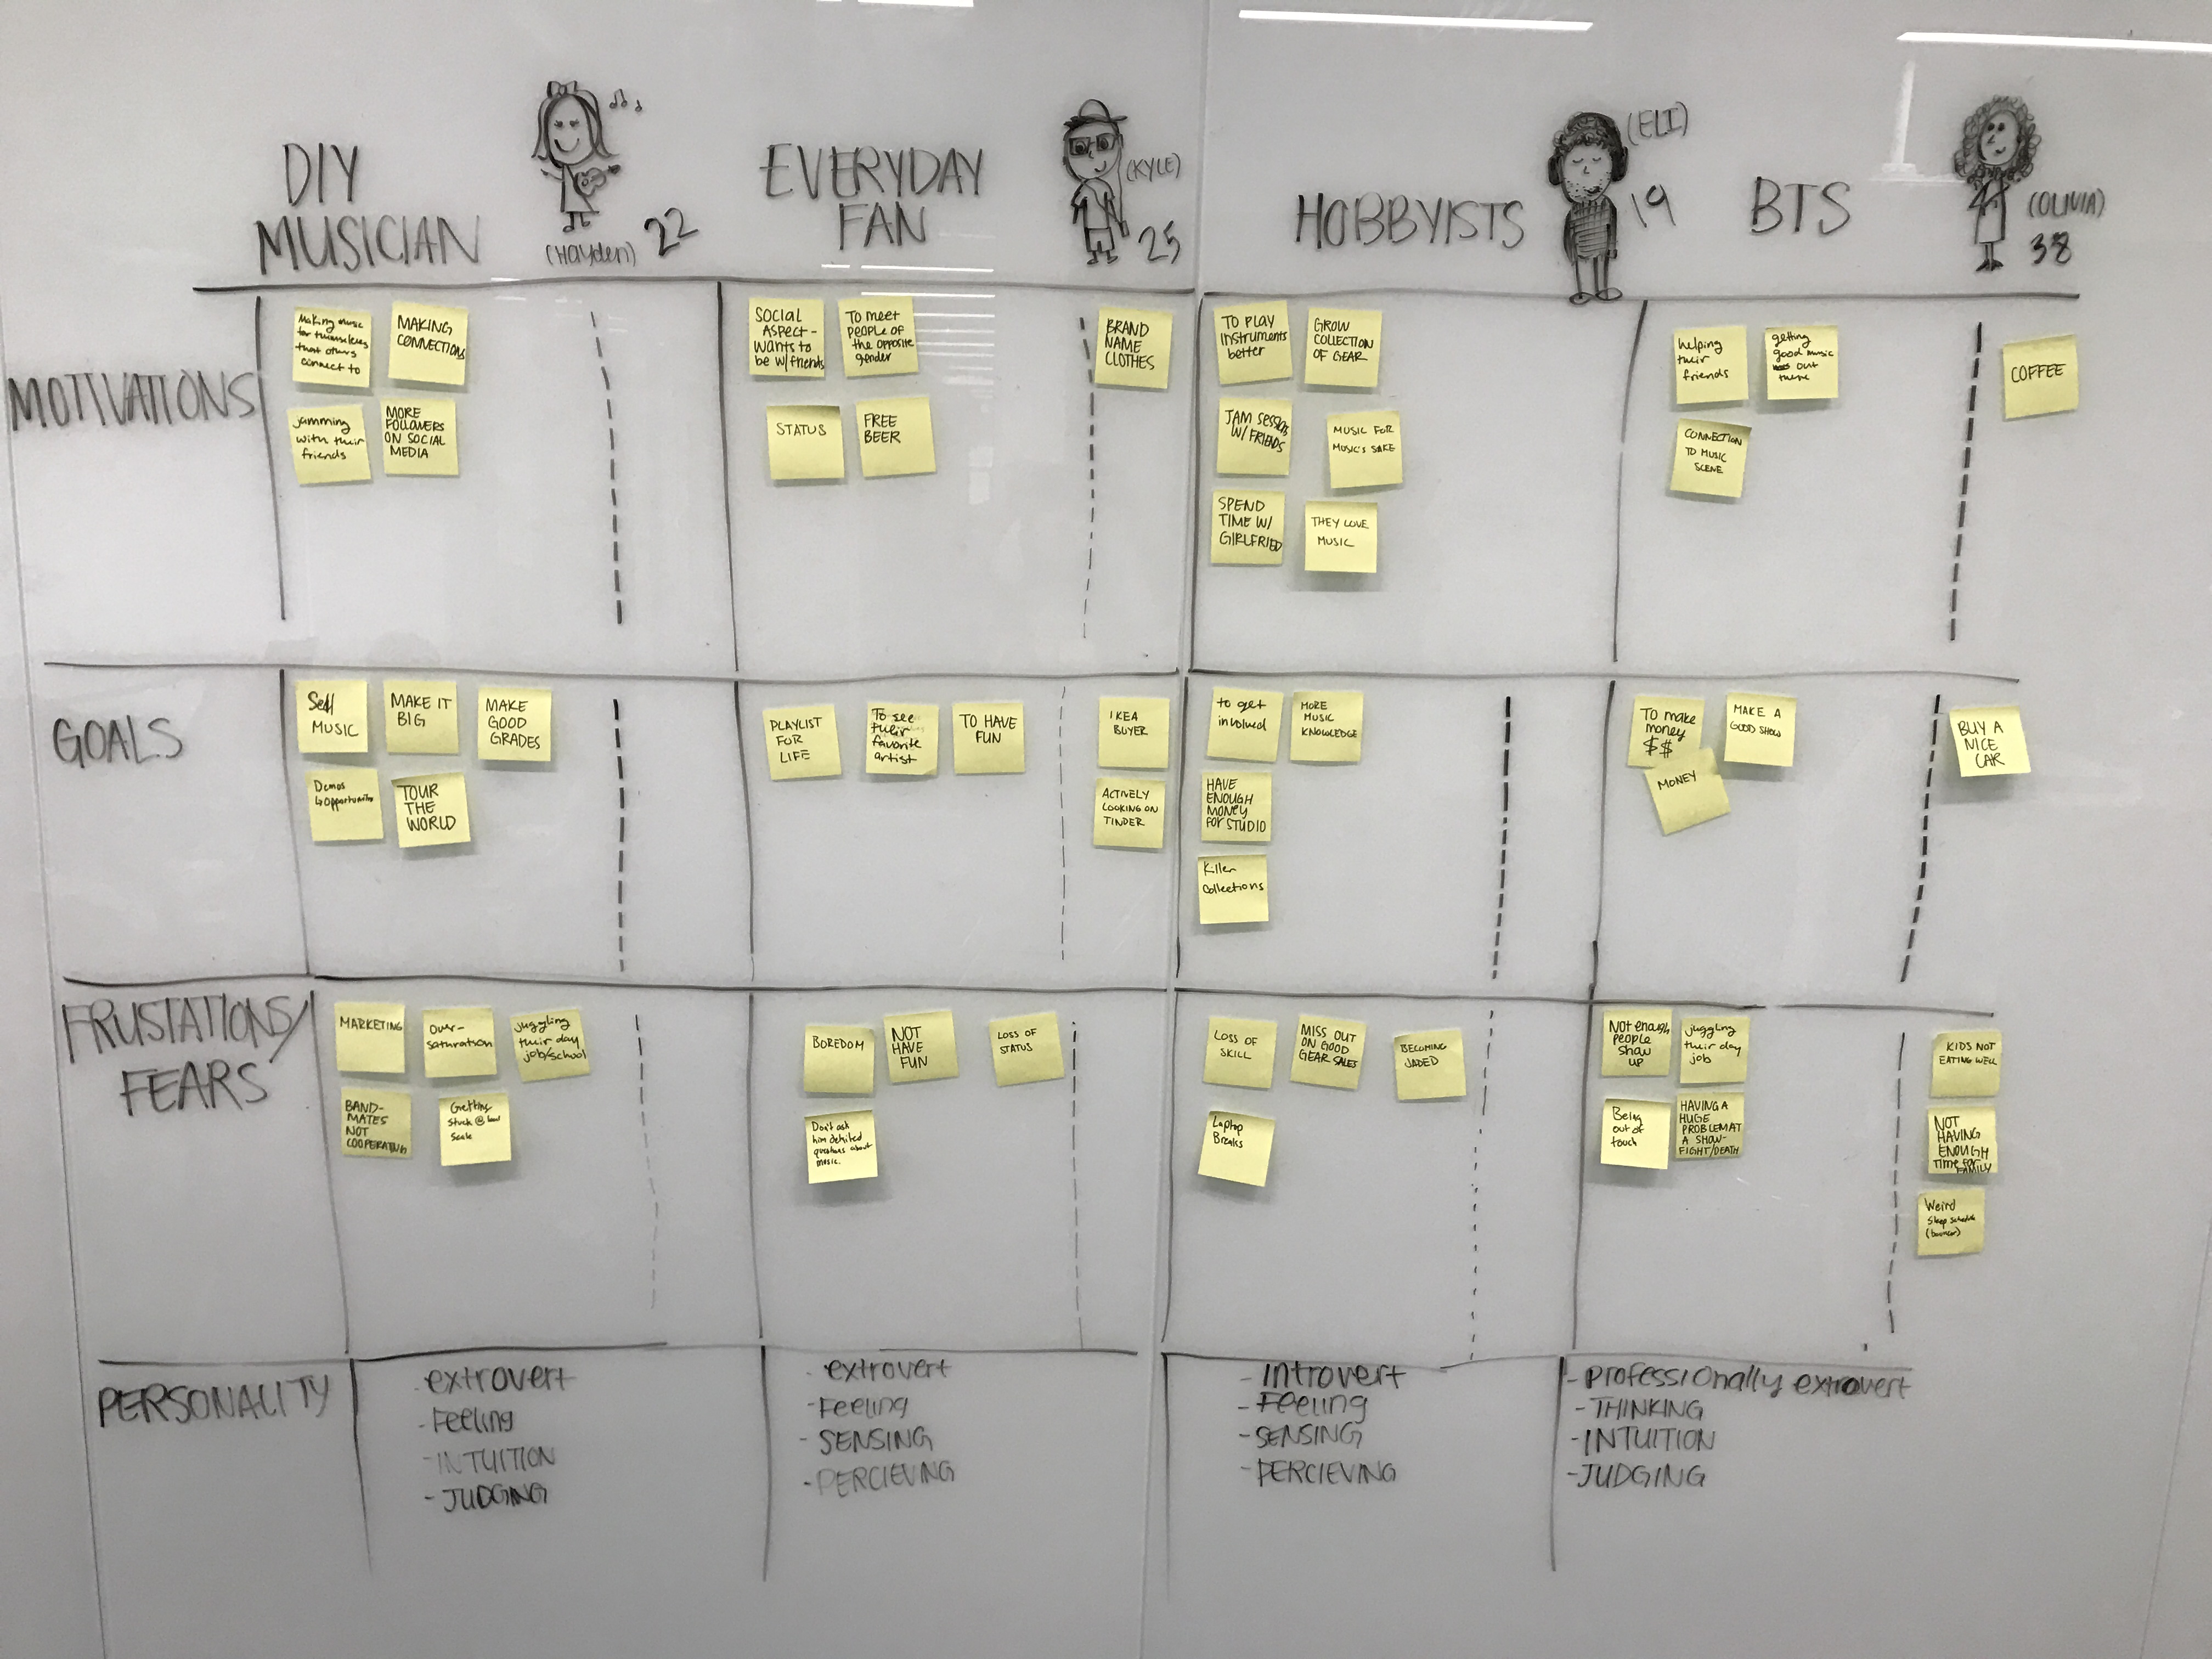 DIY
MUSICIAN
(Hayden) 22
EVERYDAY
FAN
(KYLE)
25
HOBBYISTS
(ELI)
19
BTS
(OLIVIA)
38
MOTIVATIONS
Making music
for themselves
that others
connect to
MAKING
CONNECTIONS
jamming
with their
friends
MORE
FOLLOWERS
ON SOCIAL
MEDIA
SOCIAL
ASPECT -
wants to
be w/friends
To meet
people of
the opposite
gender
STATUS
FREE
BEER
BRAND
NAME
CLOTHES
TO PLAY
instruments
better
GROW
COLLECTION
OF GEAR
JAM SESSIONS
W/ FRIENDS
MUSIC FOR
MUSIC'S SAKE
SPEND
TIME W/
GIRLFRIED
THEY LOVE
MUSIC
helping
their
friends
getting
good music
out
there
CONNECTION
TO MUSIC
SCENE
COFFEE
GOALS
Sell
MUSIC
MAKE IT
BIG
MAKE
GOOD
GRADES
Demos
↳opportunity
TOUR
THE
WORLD
PLAYLIST
FOR
LIFE
To see
their
favorite
artist
TO HAVE
FUN
IKEA
BUYER
ACTIVELY
LOOKING ON
TINDER
to get
involved
MORE
MUSIC
KNOWLEDGE
HAVE
ENOUGH
MONEY
FOR STUDIO
Killer
Collections
To make
money
$$
MAKE A
GOOD SHOW
MONEY
BUY A
NICE
CAR
FRUSTATIONS/
FEARS
MARKETING
over-
saturation
juggling
their day
job/school
BAND-
MATES
NOT
COOPERATING
Getting
stuck @
scale
BOREDOM
NOT
HAVE
FUN
LOSS OF
STATUS
Don't ask
him detailed
questions about
music.
LOSS OF
SKILL
MISS OUT
ON GOOD
GEAR SALES
BECOMING
JADED
Laptop
Breaks
Not enough
people
show
up
juggling
their day
job
Being
out of
touch
HAVING A
HUGE
PROBLEM AT
A SHOW-
FIGHT/DEATH
KIDS NOT
EATING WELL
NOT
HAVING
ENOUGH
Time for
FAMILY
Weird
Sleep schedule
(bouncer)
PERSONALITY
- extrovert
- Feeling
- INTUITION
- JUDGING
- extrovert
- Feeling
- SENSING
- PERCIEVING
- Introvert
- Feeling
- SENSING
- PERCIEVING
- professionally extrovert
- THINKING
- INTUITION
- JUDGING